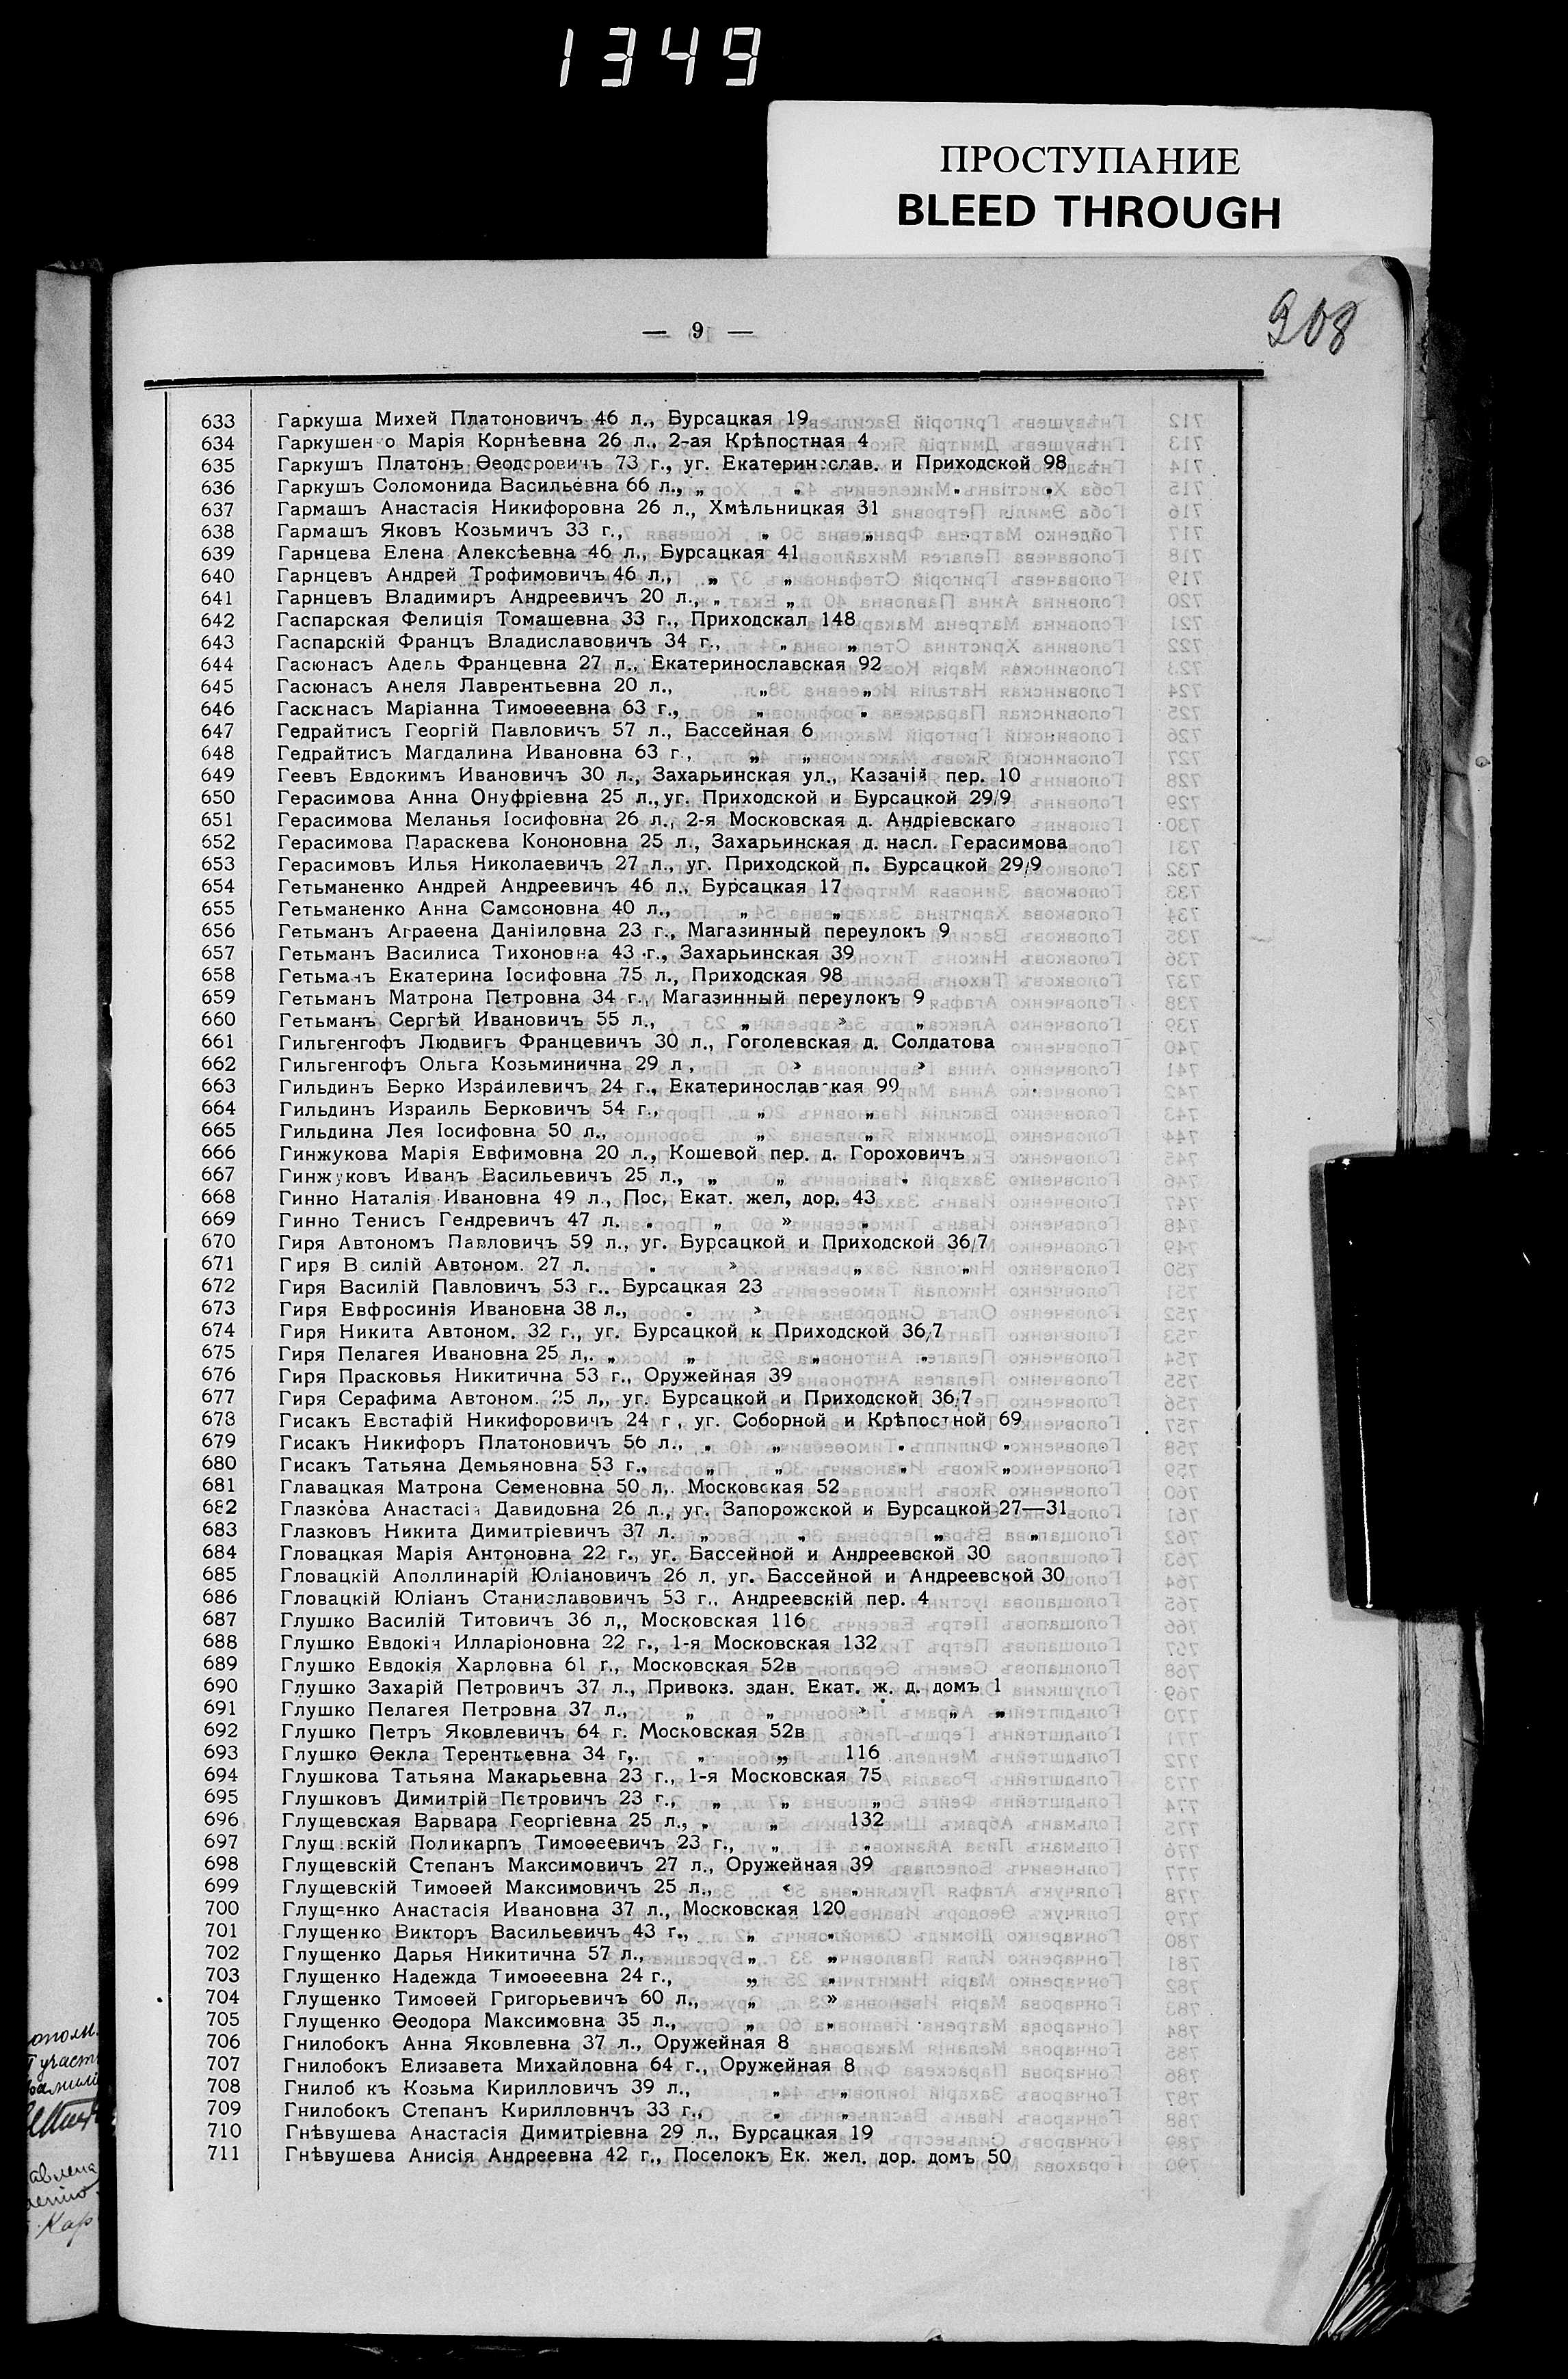 1349
ПРОСТУПАНИЕ
BLEED THROUGH
— 9 —
208
633 Гаркуша Михей Платоновичъ 46 л., Бурсацкая 19
634 Гаркушен о Марія Корнѣевна 26 л., 2-ая Крѣпостная 4
635 Гаркушъ Платонъ Ѳеодоровичъ 73 г., уг. Екатеринослав. и Приходской 98
636 Гаркушъ Соломонида Васильевна 66 л., „ „ „ „
637 Гармашъ Анастасія Никифоровна 26 л., Хмѣльницкая 31
638 Гармашъ Яковъ Козьмичъ 33 г., „ „
639 Гарнцева Елена Алексѣевна 46 л., Бурсацкая 41
640 Гарнцевъ Андрей Трофимовичъ 46 л., „ „
641 Гарнцевъ Владимиръ Андреевичъ 20 л., „ „
642 Гаспарская Фелиція Томашевна 33 г., Приходскал 148
643 Гаспарскій Францъ Владиславовичъ 34 г., „ „
644 Гасюнасъ Адель Францевна 27 л., Екатеринославская 92
645 Гасюнасъ Анеля Лаврентьевна 20 л., „ „
646 Гасюнасъ Маріанна Тимоѳеевна 63 г., „ „
647 Гедрайтисъ Георгій Павловичъ 57 л., Бассейная 6
648 Гедрайтисъ Магдалина Ивановна 63 г., „ „
649 Геевъ Евдокимъ Ивановичъ 30 л., Захарьинская ул., Казачій пер. 10
650 Герасимова Анна Онуфріевна 25 л., уг. Приходской и Бурсацкой 29/9
651 Герасимова Меланья Іосифовна 26 л., 2-я Московская д. Андріевскаго
652 Герасимова Параскева Кононовна 25 л., Захарьинская д. насл. Герасимова
653 Герасимовъ Илья Николаевичъ 27 л., уг. Приходской п. Бурсацкой 29/9
654 Гетьманенко Андрей Андреевичъ 46 л., Бурсацкая 17
655 Гетьманенко Анна Самсоновна 40 л., „ „
656 Гетьманъ Аграѳена Даніиловна 23 г., Магазинный переулокъ 9
657 Гетьманъ Василиса Тихоновна 43 г., Захарьинская 39
658 Гетьманъ Екатерина Іосифовна 75 л., Приходская 98
659 Гетьманъ Матрона Петровна 34 г., Магазинный переулокъ 9
660 Гетьманъ Сергѣй Ивановичъ 55 л., „ » „
661 Гильгенгофъ Людвигъ Францевичъ 30 л., Гоголевская д. Солдатова
662 Гильгенгофъ Ольга Козьминична 29 л , » »
663 Гильдинъ Берко Израилевичъ 24 г., Екатеринослав кая 99
664 Гильдинъ Израиль Берковичъ 54 г., „ „
665 Гильдина Лея Іосифовна 50 л., „ „
666 Гинжукова Марія Евфимовна 20 л., Кошевой пер. д. Гороховичъ
667 Гинжуковъ Иванъ Васильевичъ 25 л., „ „ „
668 Гинно Наталія Ивановна 49 л., Пос, Екат. жел, дор. 43
669 Гинно Тенисъ Гендревичъ 47 л. „ „ » „
670 Гиря Автономъ Павловичъ 59 л., уг. Бурсацкой и Приходской 36/7
671 Гиря В силій Автоном. 27 л. „ » „ „
672 Гиря Василій Павловичъ 53 г.. Бурсацкая 23
673 Гиря Евфросинія Ивановна 38 л., „ »
674 Гиря Никита Автоном. 32 г., уг. Бурсацкой к Приходской 36/7
675 Гиря Пелагея Ивановна 25 л,. „ „ „ „
676 Гиря Прасковья Никитична 53 г., Оружейная 39
677 Гиря Серафима Автоном. 25 л,, уг. Бурсацкой и Приходской 36/7
678 Гисакъ Евстафій Никифоровичъ 24 г , уг. Соборной и Крѣпостной 69
679 Гисакъ Никифоръ Платоновичъ 56 л., „ „ „ „
680 Гисакъ Татьяна Демьяновна 53 г., „ „ „ „
681 Главацкая Матрона Семеновна 50 л,. Московская 52
682 Глазкова Анастасія Давидовна 26 л., уг. Запорожской и Бурсацкой 27—31
683 Глазковъ Никита Димитріевичъ 37 л. „ „ „ „
684 Гловацкая Марія Антоновна 22 г., уг. Бассейной и Андреевской 30
685 Гловацкій Аполлинарій Юліановичъ 26 л. уг. Бассейной и Андреевской 30
686 Гловацкій Юліанъ Станиславовичъ 53 г.. Андреевскій пер. 4
687 Глушко Василій Титовичъ 36 л,, Московская 116
688 Глушко Евдокія Илларіоновна 22 г., 1-я Московская 132
689 Глушко Евдокія Харловна 61 г., Московская 52в
690 Глушко Захарій Петровичъ 37 л., Привокз. здан. Екат. ж. д. домъ 1
691 Глушко Пелагея Петровна 37 л., „ „ » „ „
692 Глушко Петръ Яковлевичъ 64 г. Московская 52в
693 Глушко Ѳекла Терентьевна 34 г,. „ „ 116
694 Глушкова Татьяна Макарьевна 23 г., 1-я Московская 75
695 Глушковъ Димитрій Петровичъ 23 г., „ „ „
696 Глущевская Варвара Георгіевна 25 л., „ „ 132
697 Глущ вскій Поликарпъ Тимоѳеевичъ 23 г., „ „
698 Глущевскій Степанъ Максимовичъ 27 л., Оружейная 39
699 Глущевскій Тимоѳей Максимовичъ 25 л., « „
700 Глущенко Анастасія Ивановна 37 л., Московская 120
701 Глущенко Викторъ Васильевичъ 43 г., „ „
702 Глущенко Дарья Никитична 57 л., „ „
703 Глущенко Надежда Тимоѳеевна 24 г., „ „
704 Глущенко Тимоѳей Григорьевичъ 60 л., „ »
705 Глущенко Ѳеодора Максимовна 35 л., „ „
706 Гнилобокъ Анна Яковлевна 37 л., Оружейная 8
707 Гнилобокъ Елизавета Михайловна 64 г., Оружейная 8
708 Гнилоб къ Козьма Кирилловичъ 39 л., „ „
709 Гнилобокъ Степанъ Кирилловнчъ 33 г., „ „
710 Гнѣвушева Анастасія Димитріевна 29 л., Бурсацкая 19
711 Гнѣвушева Анисія Андреевна 42 г., Поселокъ Ек. жел. дор. домъ 50